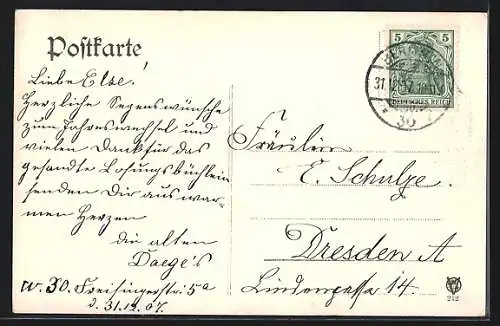 Postkarte
Liebe Else!
Herzliche Segenswünsche
zum Jahreswechsel und
vielen Dank für das
gesandte Losungsbüchlein
senden Dir aus war-
men Herzen
die alten
Daege's
W. 30. Freisingerstr. 5a
d. 31.12.07.
5 5
DEUTSCHES REICH
BERLIN
31.12.07
30
Fräulein
E. Schulze.
Dresden A
Lindengasse 14.
212